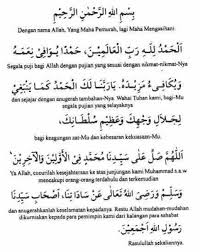 بِسْمِ اللهِ الرَّحْمٰنِ الرَّحِيْمِ
Dengan nama Allah, Yang Maha Pemurah, lagi Maha Mengasihani
اَلْحَمْدُ لِلّٰهِ رَبِّ الْعَالَمِيْنَ، حَمْدًا يُوَافِيْ نِعَمَهُ
Segala puji bagi Allah dengan pujian yang sesuai dengan nikmat-nikmat-Nya
وَيُكَافِىءُ مَزِيْدَهُ. يَارَبَّنَا لَكَ الْحَمْدُ كَمَا يَنْبَغِيْ
dan sejajar dengan anugerah tambahan-Nya. Wahai Tuhan kami, bagi-Mu
segala pujian yang selayaknya
لِجَلَالِ وَجْهِكَ وَعَظِيْمِ سُلْطَانِكَ.
bagi keagungan zat-Mu dan kebesaran kekuasaan-Mu.
اَللّٰهُمَّ صَلِّ عَلٰى سَيِّدِنَا مُحَمَّدٍ فِى الْاَوَّلِيْنَ وَالْاٰخِرِيْنَ
Ya Allah, cucurilah kesejahteraan ke atas junjungan kami Muhammad s.a.w
mencakupi orang-orang terdahulu dan terkemudian
وَسَلِّمْ وَرَضِيَ اللهُ تَعَالٰى عَنْ سَادَتِنَا، اَصْحَابِ سَيِّدِنَا
dan anugerahkanlah keselamatan kepadanya. Restu Allah mudahan-mudahan
dikurniakan kepada para pemimpin kami dari kalangan para sahabat
رَسُوْلِ اللهِ اَجْمَعِيْنَ.
Rasulullah sekaliannya.